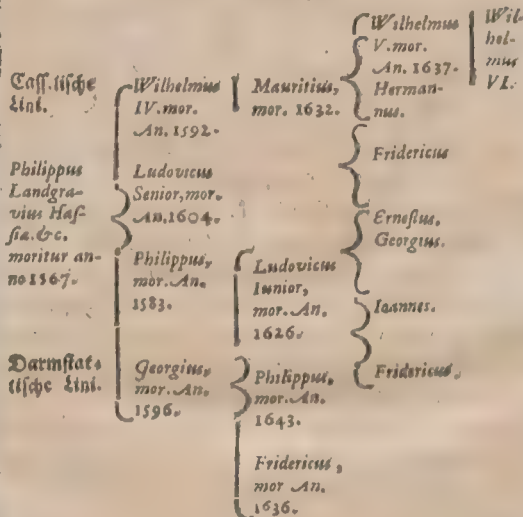 Cass.lische
Lini.
Philippus
Landgra-
vius Has-
siæ.&c.
moritur an-
no 1567.
Darmstat-
tische Lini.
Wilhelmus
IV. mor.
An. 1592.
Ludovicus
Senior, mor.
An. 1604.
Philippus,
mor. An.
1583.
Georgius,
mor. An.
1596.
Mauritius,
mor. 1632.
Ludovicus
Iunior,
mor. An.
1626.
Philippus,
mor. An.
1643.
Fridericus,
mor An.
1636.
Wilhelmus
V. mor.
An. 1637.
Herman-
nus.
Fridericus
Ernestus.
Georgius.
Ioannes.
Fridericus.
Wil-
hel-
mus
VI.